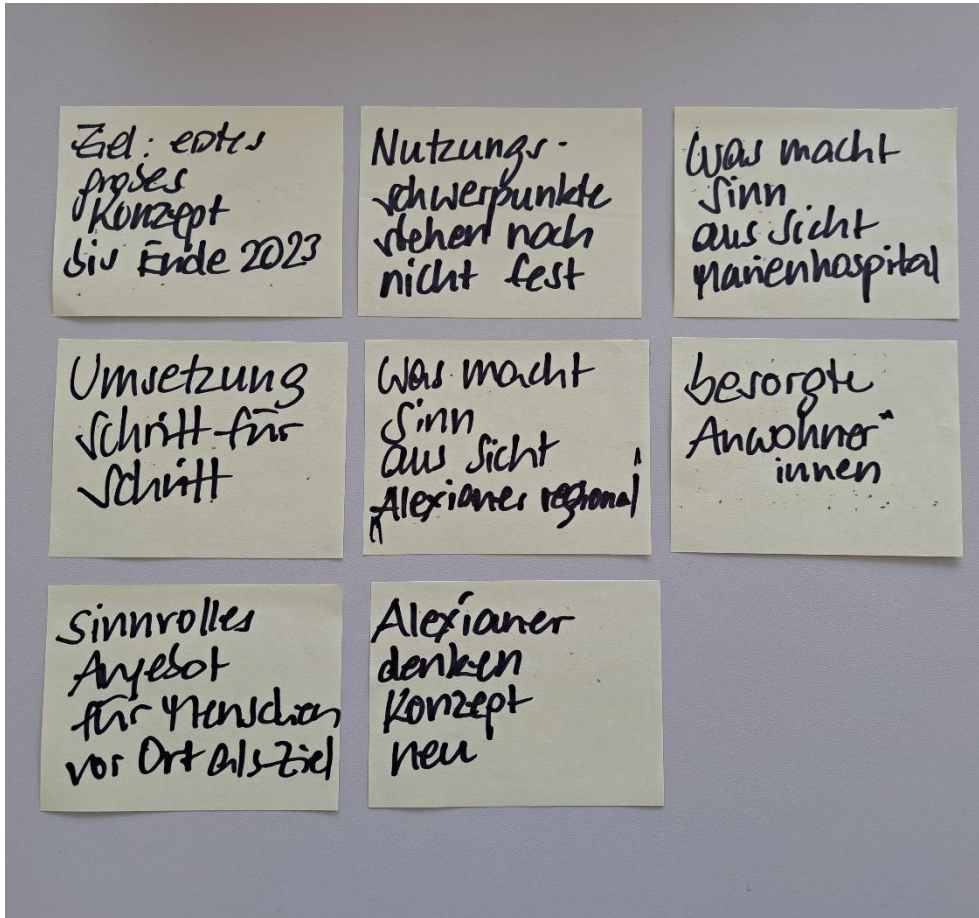 Ziel: erstes
grobes
Konzept
bis Ende 2023
Nutzungs-
schwerpunkte
stehen noch
nicht fest
Was macht
Sinn
aus Sicht
Marienhospital
Umsetzung
Schritt für
Schritt
Was macht
Sinn
aus Sicht
Alexianer regional
besorgte
Anwohner*
innen
Sinnvolles
Angebot
für Menschen
vor Ort als Ziel
Alexianer
denken
Konzept
neu